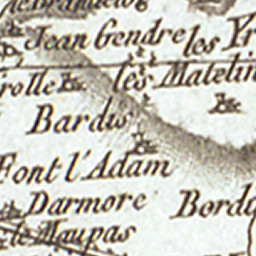 Jean Gendre les
les Matelin
rolle
Bardis
Font l'Adam
Darmore Bord
le Maupas